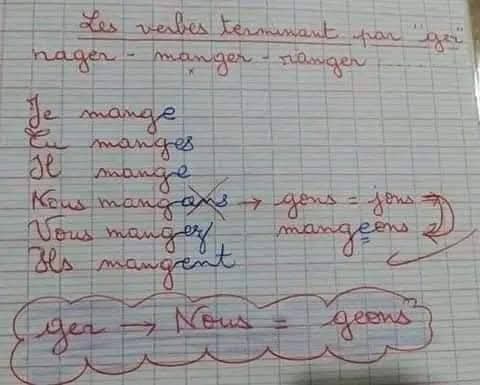 Les verbes terminant par "ger"
nager - manger - ranger ......
Je mange
Tu manges
Il mange
Nous mangons → gons = jons →
Vous mangez mangeons
Ils mangent
ger → Nous = geons